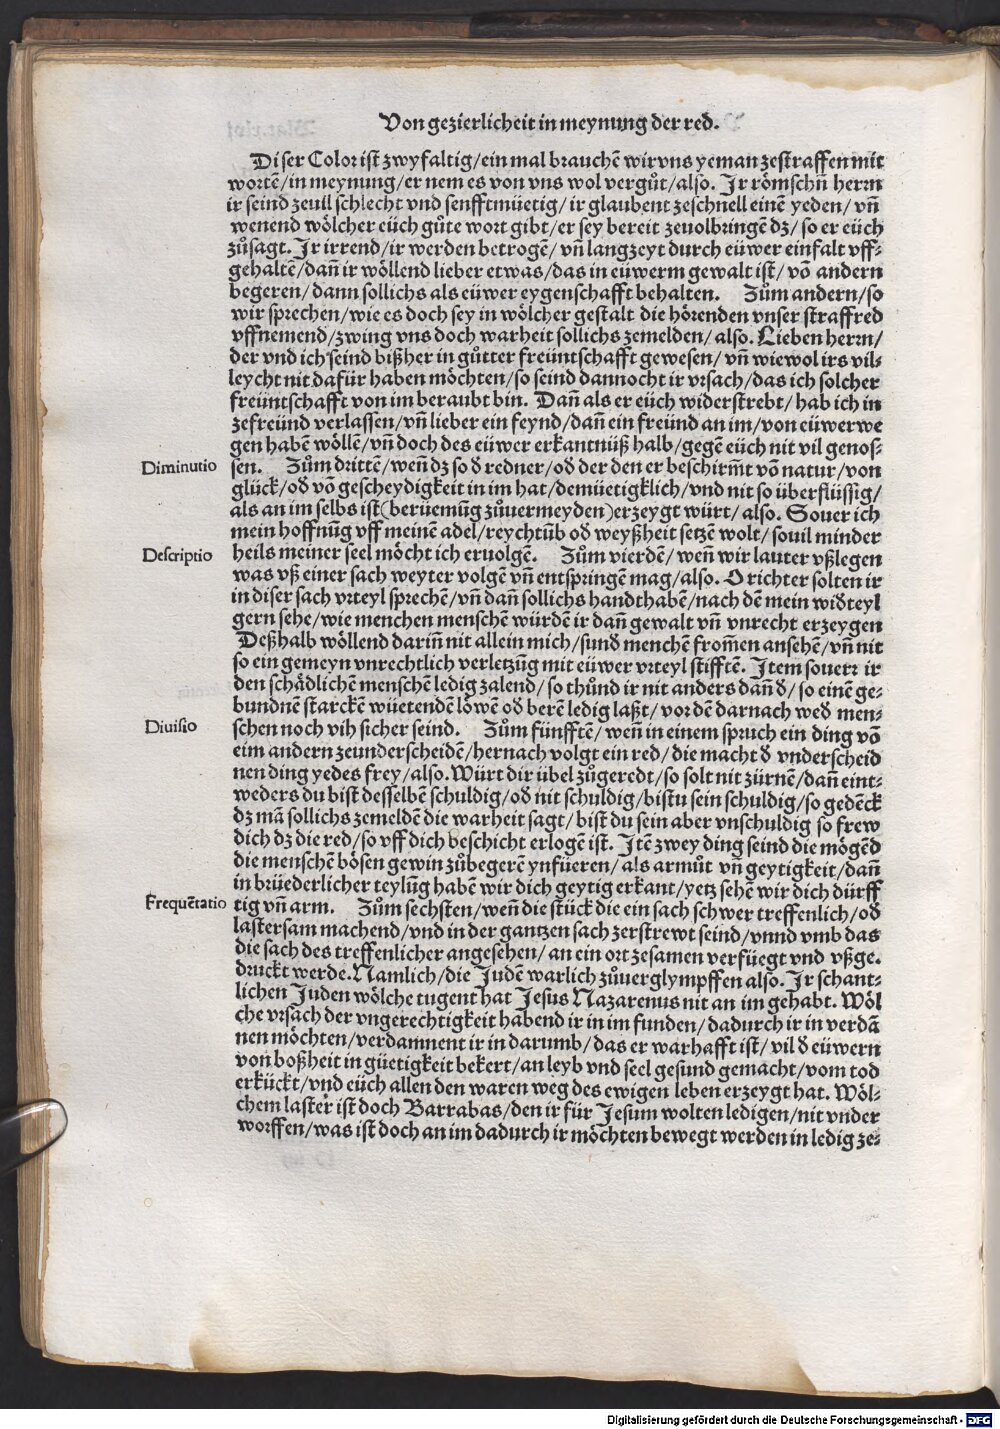 Von gezierlicheit in meynung der red.
Diser Color ist zwyfaltig/ein mal brauchē wir vns yeman zestraffen mit
wortē/in meynung/er nem es von vns wol vergůt/also. Ir römschñ herrn
ir seind zeuil schlecht vnd senfftmüetig/ir glaubent zeschnell einē yeden/vñ
wenend wölcher eüch gůte wort gibt/er sey bereit zeuolbringē dz/so er eüch
zůsagt. Ir irrend/ir werden betrogē/vñ langzeyt durch eüwer einfalt vff-
gehaltē/dañ ir wöllend lieber etwas/das in eüwerm gewalt ist/vō andern
begeren/dann sollichs als eüwer eygenschafft behalten. Zům andern/so
wir sprechen/wie es doch sey in wölcher gestalt die hörenden vnser straffred
vffnemend/zwing vns doch warheit sollichs zemelden/also. Lieben herrn/
der vnd ich seind bißher in gůtter freüntschafft gewesen/vñ wiewol irs vil-
leycht nit dafür haben möchten/so seind dannocht ir vrsach/das ich solcher
freüntschafft von im beraubt bin. Dañ als er eüch widerstrebt/hab ich in
zefreünd verlassen/vñ lieber ein feynd/dañ ein freünd an im/von eüwer we
gen habē wöllē/vñ doch des eüwer erkantnüß halb/gegē eüch nit vil genos-
Diminutio
sen. Zům drittē/weñ dz so d redner/od der den er beschirm̄t vō natur/von
glück/od vō gescheydigkeit in im hat/demüetigklich/vnd nit so überflüssig/
als an im selbs ist(berüemūg zůuermeyden)erzeygt würt/also. Souer ich
mein hoffnūg vff meinē adel/reychtūb od weyßheit setzē wolt/souil minder
Descriptio
heils meiner seel möcht ich eruolgē. Zům vierdē/weñ wir lauter vßlegen
was vß einer sach weyter volgē vñ entspringē mag/also. O richter solten ir
in diser sach vrteyl sprechē/vñ dañ sollichs handthabē/nach dē mein widteyl
gern sehe/wie menchen menschē würdē ir dañ gewalt vñ vnrecht erzeygen
Deßhalb wöllend dariñ nit allein mich/sund menchē from̄en ansehē/vñ nit
so ein gemeyn vnrechtlich verletzūg mit eüwer vrteyl stifftē. Item souerr ir
den schädlichē menschē ledig zalend/so thůnd ir nit anders dañ d/so einē ge-
bundnē starckē wüetendē löwē od berē ledig laßt/vor dē darnach wed men-
Diuisio
schen noch vih sicher seind. Zům fünfftē/weñ in einem spruch ein ding vō
eim andern zeunderscheidē/hernach volgt ein red/die macht d vnderscheid
nen ding yedes frey/also. Würt dir übel zůgeredt/so solt nit zürnē/dañ eint-
weders du bist desselbē schuldig/od nit schuldig/bistu sein schuldig/so gedēck
dz mā sollichs zemeldē die warheit sagt/bist du sein aber vnschuldig so frew
dich dz die red/so vff dich beschicht erlogē ist. Itē zwey ding seind die mögēd
die menschē bösen gewin zůbegerē ynfüeren/als armůt vñ geytigkeit/dañ
in brüederlicher teylūg habē wir dich geytig erkant/yetz sehē wir dich dürff
Frequētatio
tig vñ arm. Zům sechsten/weñ die stück die ein sach schwer treffenlich/od
lastersam machend/vnd in der gantzen sach zerstrewt seind/vnnd vmb das
die sach des treffenlicher angesehen/an ein ort zesamen verfüegt vnd vßge.
druckt werde. Namlich/die Judē warlich zůuerglympffen also. Ir schant-
lichen Juden wölche tugent hat Jesus Nazarenus nit an im gehabt. Wöl
che vrsach der vngerechtigkeit habend ir in im funden/dadurch ir in verdā
nen möchten/verdamnent ir in darumb/das er warhafft ist/vil d eüwern
von boßheit in güetigkeit bekert/an leyb vnd seel gesund gemacht/vom tod
erkückt/vnd eüch allen den waren weg des ewigen leben erzeygt hat. Wöl-
chem laster ist doch Barrabas/den ir für Jesum wolten ledigen/nit vnder
worffen/was ist doch an im dadurch ir möchten bewegt werden in ledig ze-
Digitalisierung gefördert durch die Deutsche Forschungsgemeinschaft - DFG